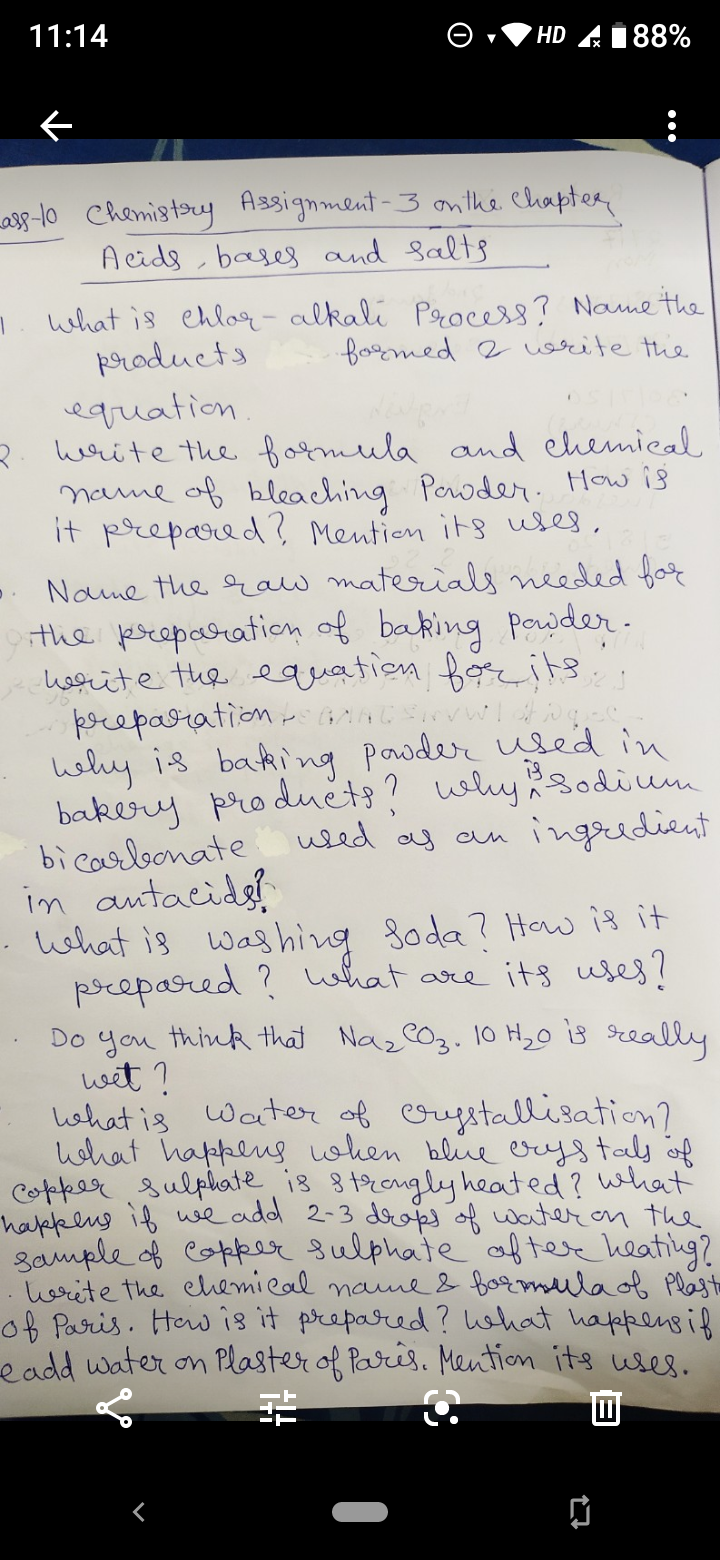 11:14 HD 88%
ass-10 Chemistry Assignment-3 on the Chapter
Acids, bases and salts
1. What is chlor-alkali Process? Name the
products formed & write the
equation.
2. Write the formula and chemical
name of bleaching Powder. How is
it prepared? Mention its uses.
Name the raw materials needed for
the preparation of baking powder.
Write the equation for its
preparation.
Why is baking powder used in
bakery products? Why is sodium
bicarbonate used as an ingredient
in antacids?
What is washing soda? How is it
prepared? What are its uses?
Do you think that Na2CO3.10H2O is really
wet?
What is water of crystallisation?
What happens when blue crystals of
copper sulphate is strongly heated? What
happens if we add 2-3 drops of water on the
sample of copper sulphate after heating?
Write the chemical name & formula of Plast
of Paris. How is it prepared? What happens if
e add water on Plaster of Paris. Mention its uses.